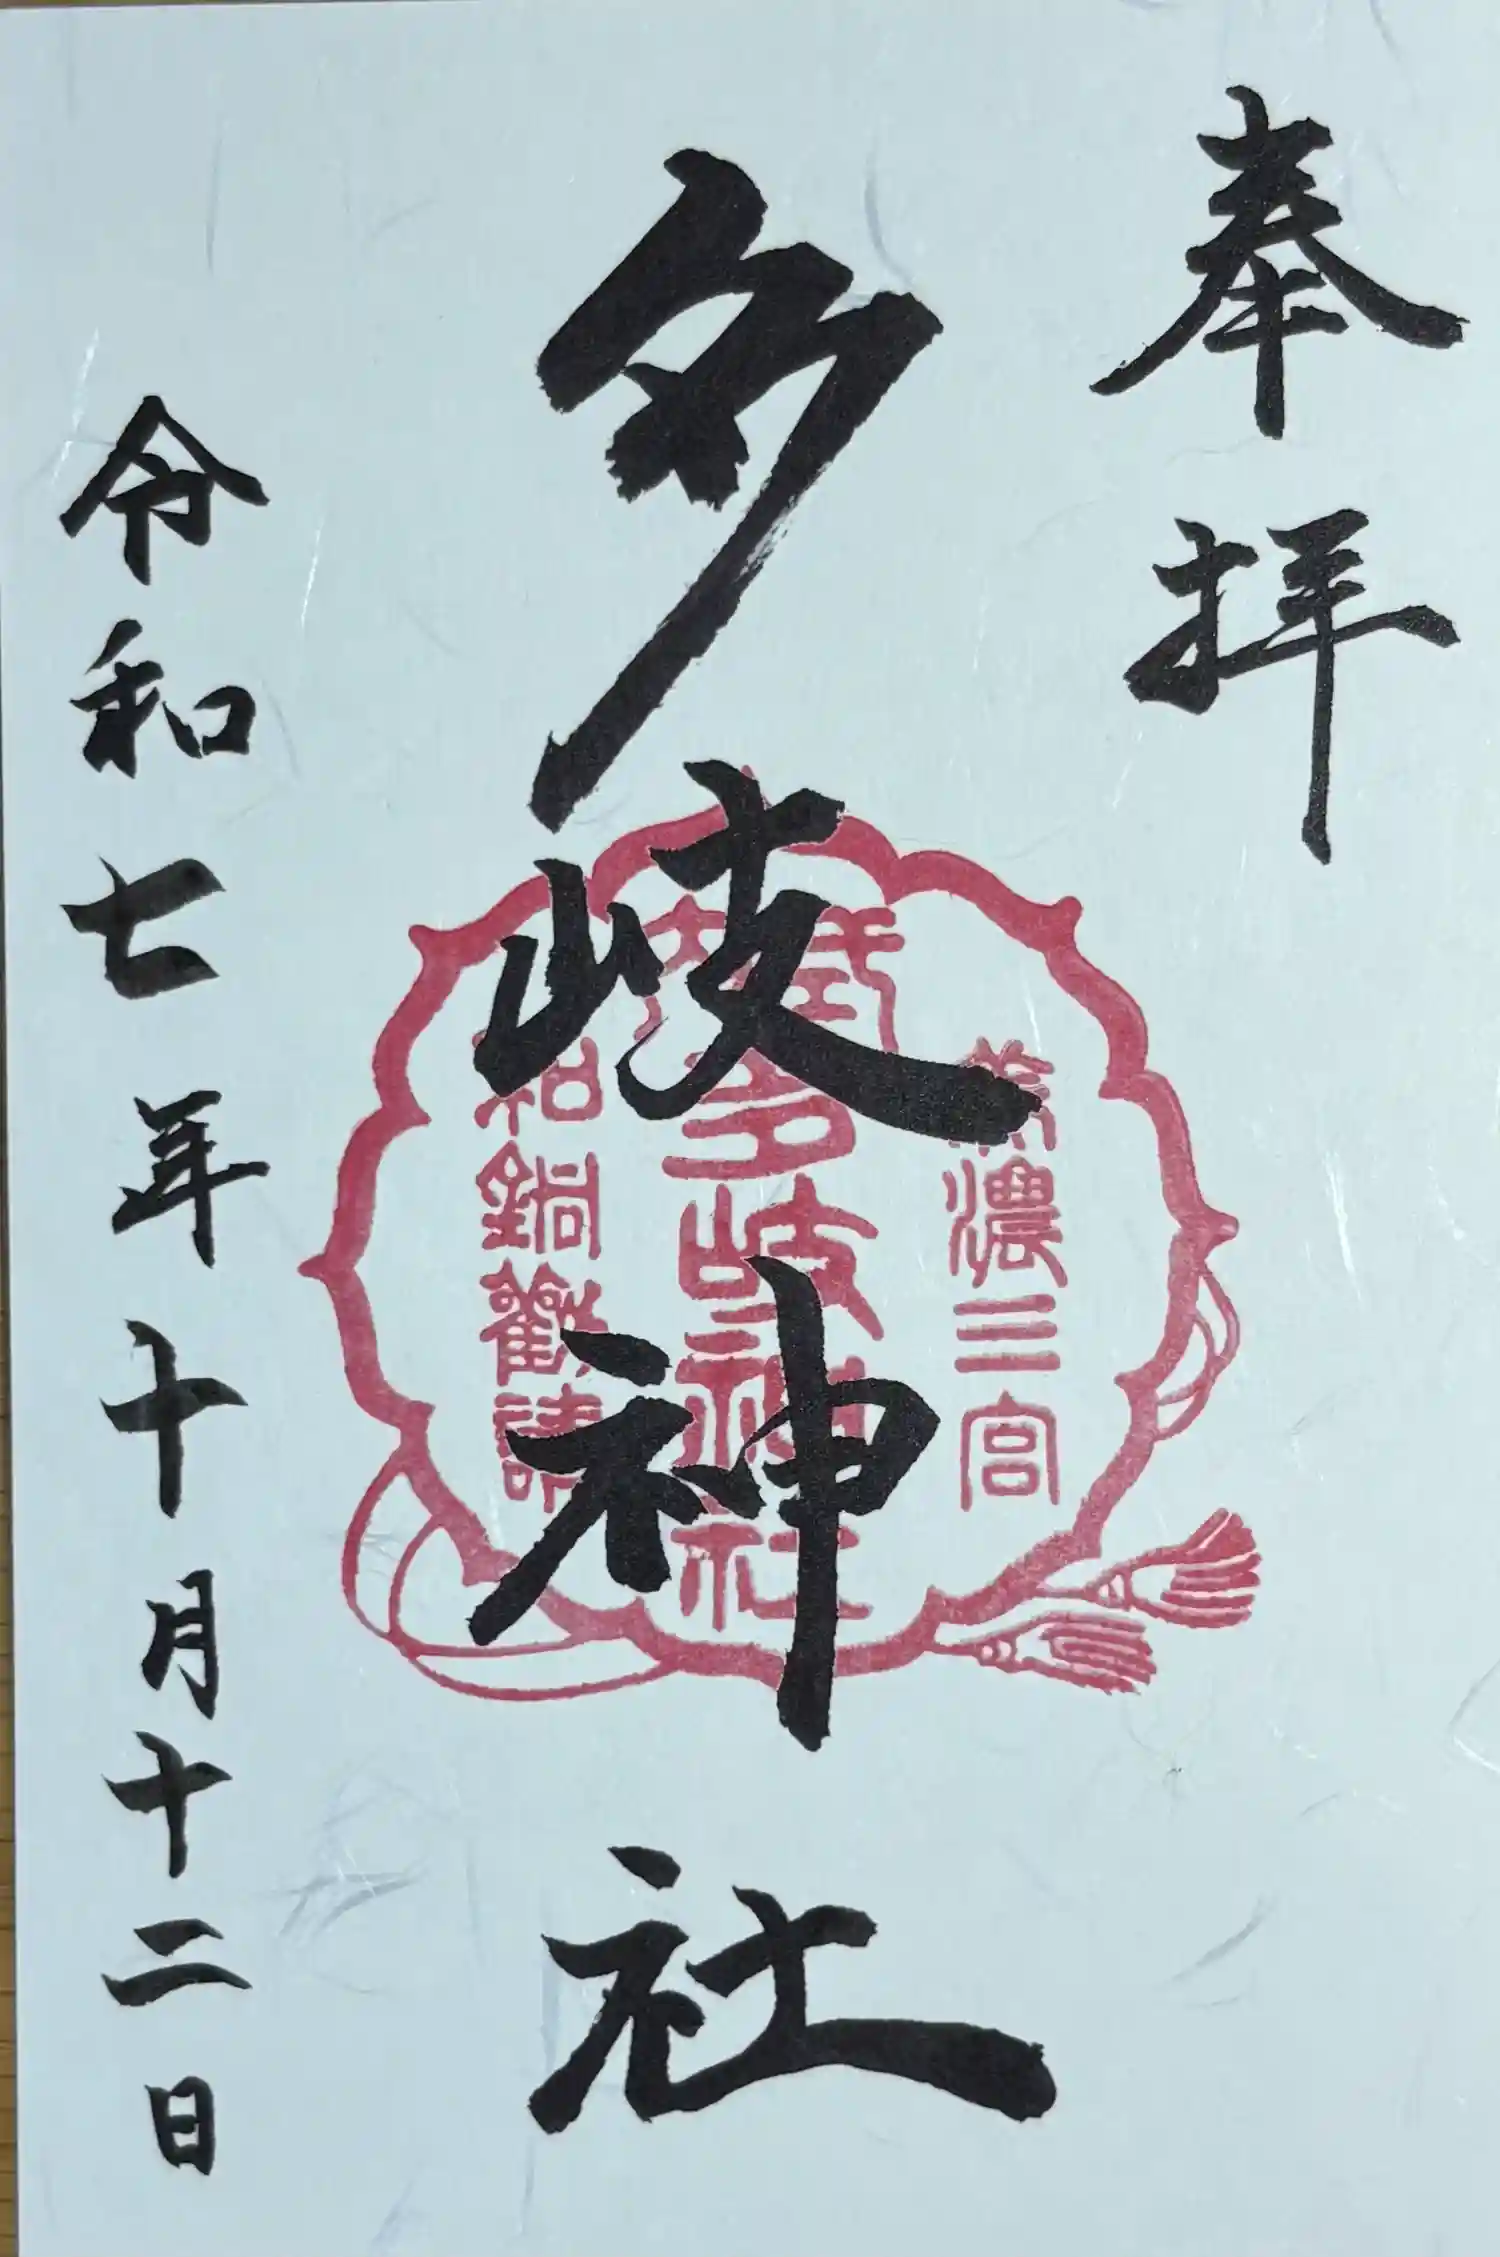 奉拝
美濃三宮
式内
多岐神社
和銅勧請
多岐神社
令和七年十月十二日